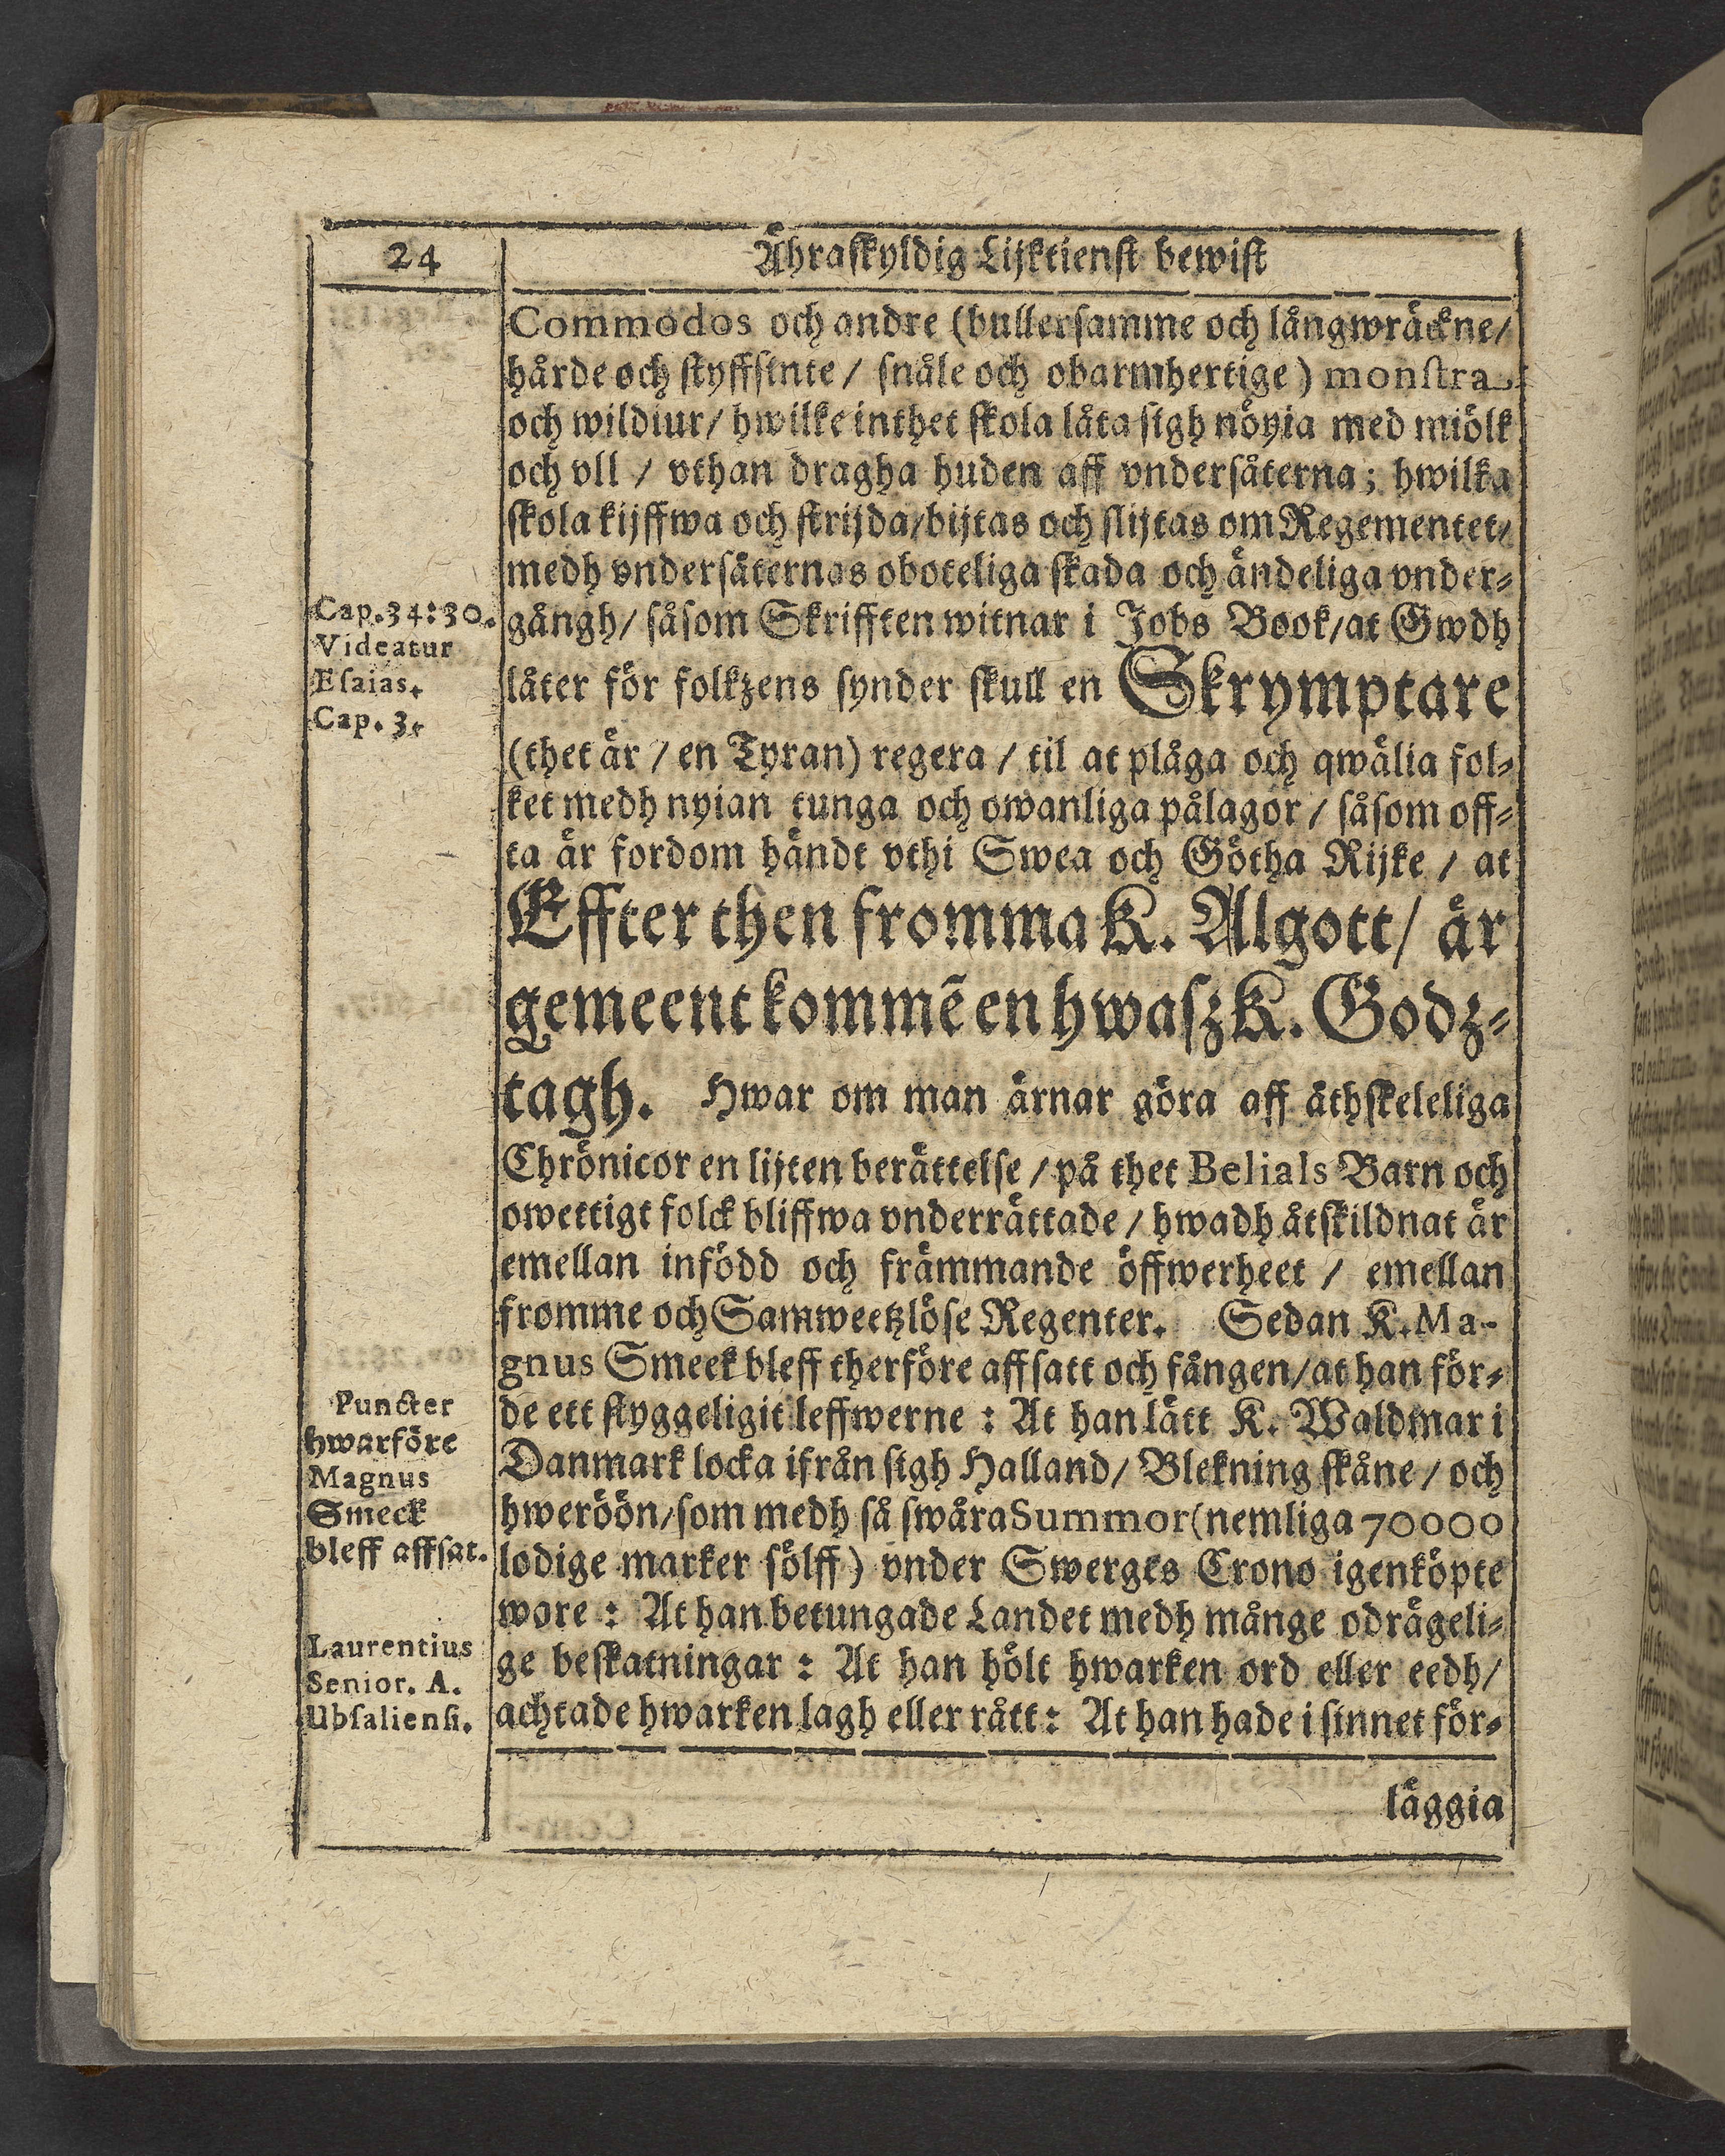 24
Ähraskyldig Lijktienst bewist
Commodos och andre (bullersamme och långwräckne/
hårde och styffsinte / snåle och obarmhertige) monstra
och wildiur / hwilke inthet skola låta sigh nöyia med miölk
och vll / vthan dragha huden aff vndersåterna; hwilka
skola kijffwa och strijda / bijtas och slijtas om Regementet/
medh vndersåternas oboteliga skada och ändeliga vnder-
gångh / såsom Skrifften witnar i Jobs Book / at Gwdh
låter för folkzens synder skull en Skrymptare
(thet är / en Tyran) regera / til at plåga och qwälia fol-
ket medh nyian tunga och owanliga pålagor / såsom off-
ta är fordom händt vthi Swea och Götha Rijke / at
Effter then fromma K. Algott / är
gemeent kommē en hwasz K. Godz-
tagh. Hwar om man ärnar göra aff äthskeleliga
Chrönicor en lijten berättelse / på thet Belials Barn och
owettigt folck bliffwa vnderrättade / hwadh åtskildnat är
emellan infödd och främmande öffwerheet / emellan
fromme och Samweetzlöse Regenter. Sedan K. Ma-
gnus Smeek bleff therföre affsatt och fången / at han för-
de ett styggeligit leffwerne : At han lätt K. Waldmar i
Danmark locka ifrån sigh Halland / Blekning skåne / och
hweröön / som medh så swåra Summor (nemliga 70000
lodige marker sölff) vnder Swerges Crono igenköpte
wore : At han betungade Landet medh månge odrägeli-
ge beskatningar : At han hölt hwarken ord eller eedh/
achtade hwarken lagh eller rätt : At han hade i sinnet för-
läggia
Cap. 34: 30.
Videatur
Esaias.
Cap. 3.
Puncter
hwarföre
Magnus
Smeck
bleff affsat.
Laurentius
Senior. A.
Ubsaliensi.